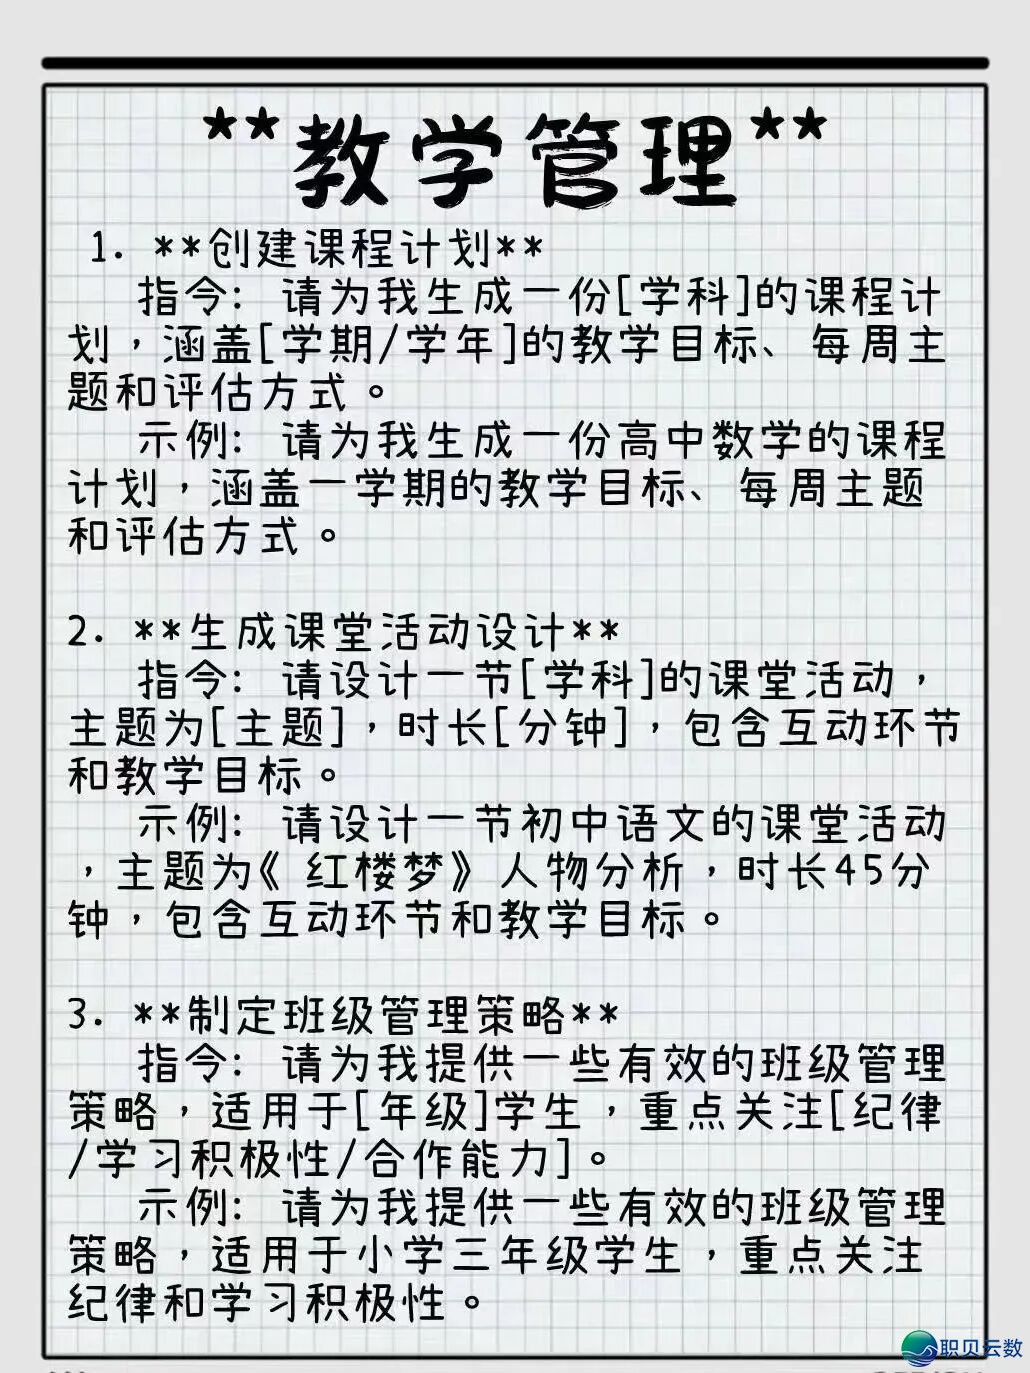 **教学管理**
1. **创建课程计划**
指令: 请为我生成一份[学科]的课程计
划，涵盖[学期/学年]的教学目标、每周主
题和评估方式。
示例: 请为我生成一份高中数学的课程
计划，涵盖一学期的教学目标、每周主题
和评估方式。
2. **生成课堂活动设计**
指令: 请设计一节[学科]的课堂活动，
主题为[主题]，时长[分钟]，包含互动环节
和教学目标。
示例: 请设计一节初中语文的课堂活动
，主题为《红楼梦》人物分析，时长45分
钟，包含互动环节和教学目标。
3. **制定班级管理策略**
指令: 请为我提供一些有效的班级管理
策略，适用于[年级]学生，重点关注[纪律
/学习积极性/合作能力]。
示例: 请为我提供一些有效的班级管理
策略，适用于小学三年级学生，重点关注
纪律和学习积极性。
职贝云数